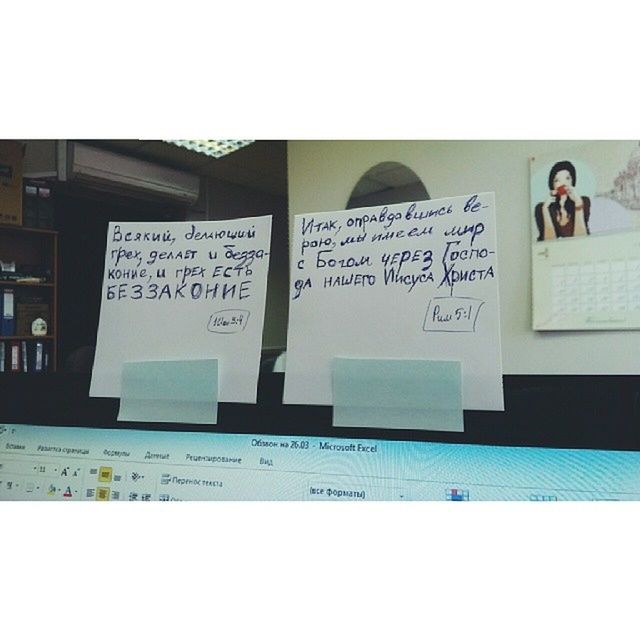 Всякий, делающий
грех, делает и безза-
коние, и грех есть
БЕЗЗАКОНИЕ
1Ин 3:4
Итак, оправдавшись ве-
рою, мы имеем мир
с Богом через Госпо-
да нашего Иисуса Христа
Рим 5:1
Обзвон на 26.03 - Microsoft Excel
Вставка Разметка страницы Формулы Данные Рецензирование Вид
11
Перенос текста
(все форматы)